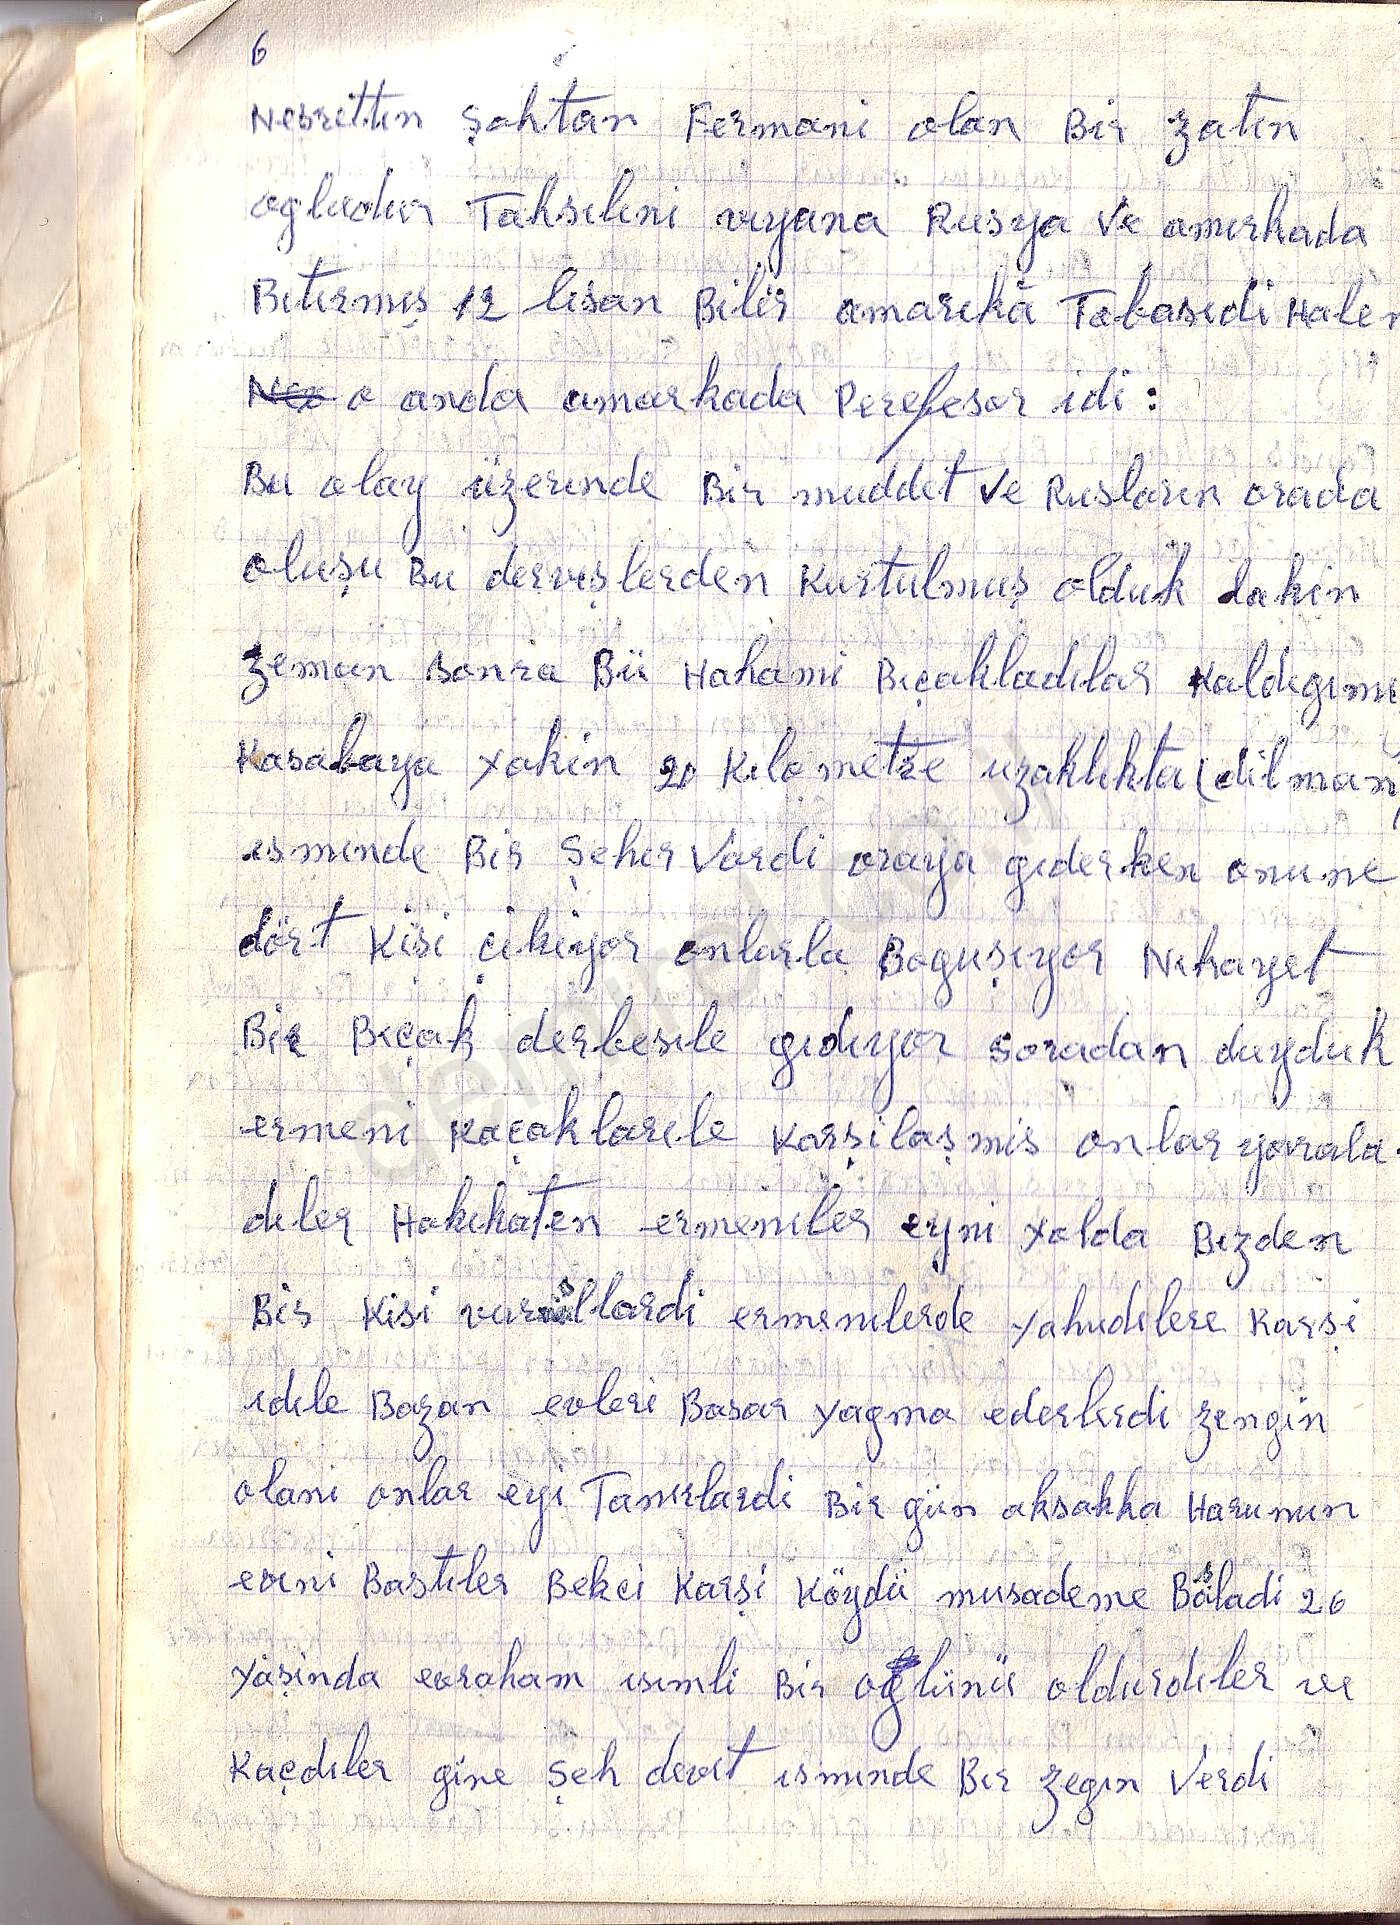 6
Nesrettin şahtan Fermani olan Bir zatın
ogludur Tahsilini vıyana Rusya Ve amırkada
Bıtırmış 12 lisan Bilir amarıka Tabasıdi Halen
o anda amarkada Perefesor idi:
Bu olay üzerınde Bir muddet Ve Rusların orada
oluşu Bu dervışlerden Kurtulmuş olduk lakin
zeman sonra Bir Hahami Bıçakladılar Kaldıgımı
Kasabaya yakin 20 Kılometre uzaklıkta (dilman)
ısmınde Bir şehır Vardi oraya gıderken onune
dört Kişi çikiyor onlarla Boguşıyor Nıhayet
Bir Bıçak derbesıle gıdıyor soradan duyduk
ermeni Kaçakları̇le Karşilaşmis onlar yarala
dıler Hakıkaten ermenıler eyni yolda Bızden
Bir Kisi vurmuslardi ermenılerde yahudılere Karşi
ıdıle Bazan evleri Basar yagma ederlerdi zengin
olani onlar eyi Tanırlardi Bir gün aksakka Harunun
evıni Bastıler Bekci Karşi Köydü musademe Basladi 26
yaşinda evraham ısımli Bir oglünü oldurdıler ve
Kaçdıler gine Şeh devıt ısmınde Bır zegın Verdi
demirel